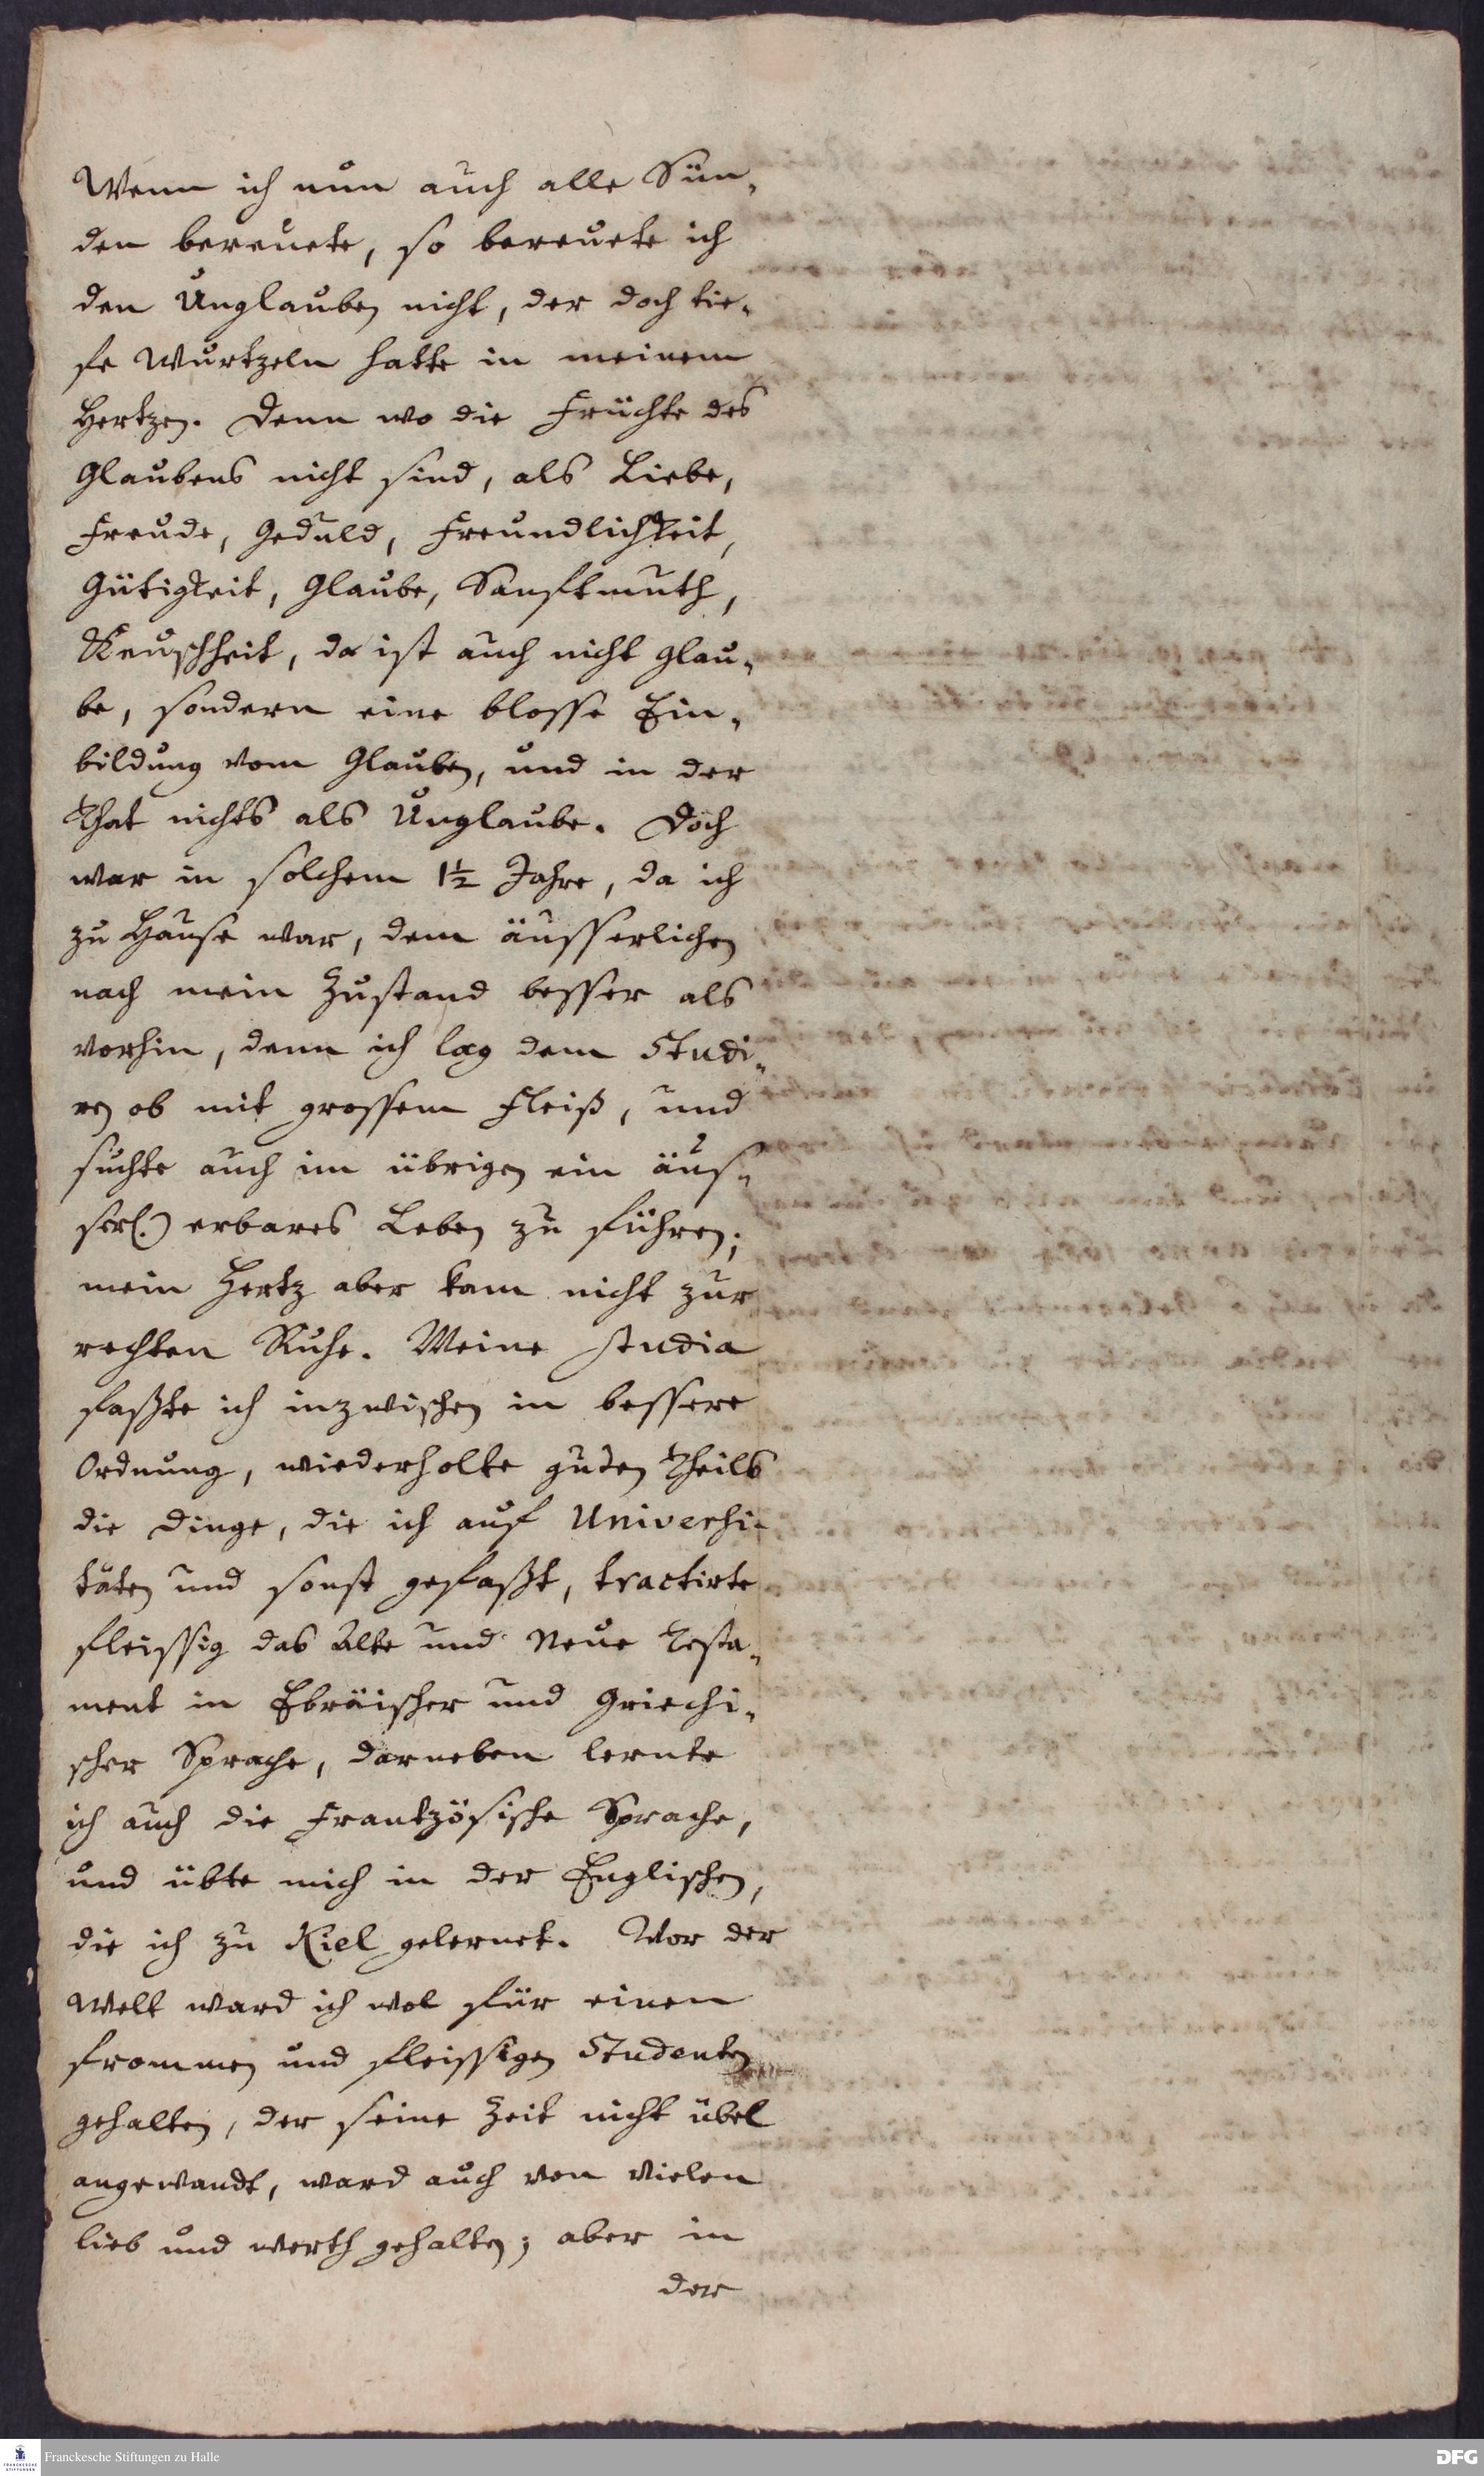 Wenn ich nun auch alle Sün„
den bereuete, so bereuete ich
den Unglauben nicht, der doch tie„
fe Wurtzeln hatte in meinem
Hertzen. Denn wo die Früchte des
Glaubens nicht sind, als Liebe,
Freude, Geduld, Freundlichkeit,
Gütigkeit, Glaube, Sanftmuth,
Keuschheit, da ist auch nicht Glau„
be, sondern eine blosse Ein„
bildung vom Glauben, und in der
That nichts als Unglaube. Doch
war in solchem 1½ Jahre, da ich
zu Hause war, dem äusserlichen
nach mein Zustand besser als
vorhin, denn ich lag dem Studi„
ren ob mit grossem Fleiß, und
suchte auch im übrigen ein äus„
serl.) erbares Leben zu führen;
mein Hertz aber kam nicht zur
rechten Ruhe. Meine studia
faßte ich inzwischen in bessere
Ordnung, wiederholte guten Theils
die Dinge, die ich auf Universi„
täten und sonst gefaßt, tractirte
fleissig das Alte und Neue Testa„
ment in Ebräischer und Griechi„
scher Sprache, darneben lernte
ich auch die Frantzösische Sprache,
und übte mich in der Englischen,
die ich zu Kiel gelernet. Vor der
Welt ward ich wol für einen
frommen und fleissigen Studenten
gehalten, der seine Zeit nicht übel
angewandt, ward auch von vielen
lieb und werth gehalten; aber in
der
Franckesche Stiftungen zu Halle
DFG